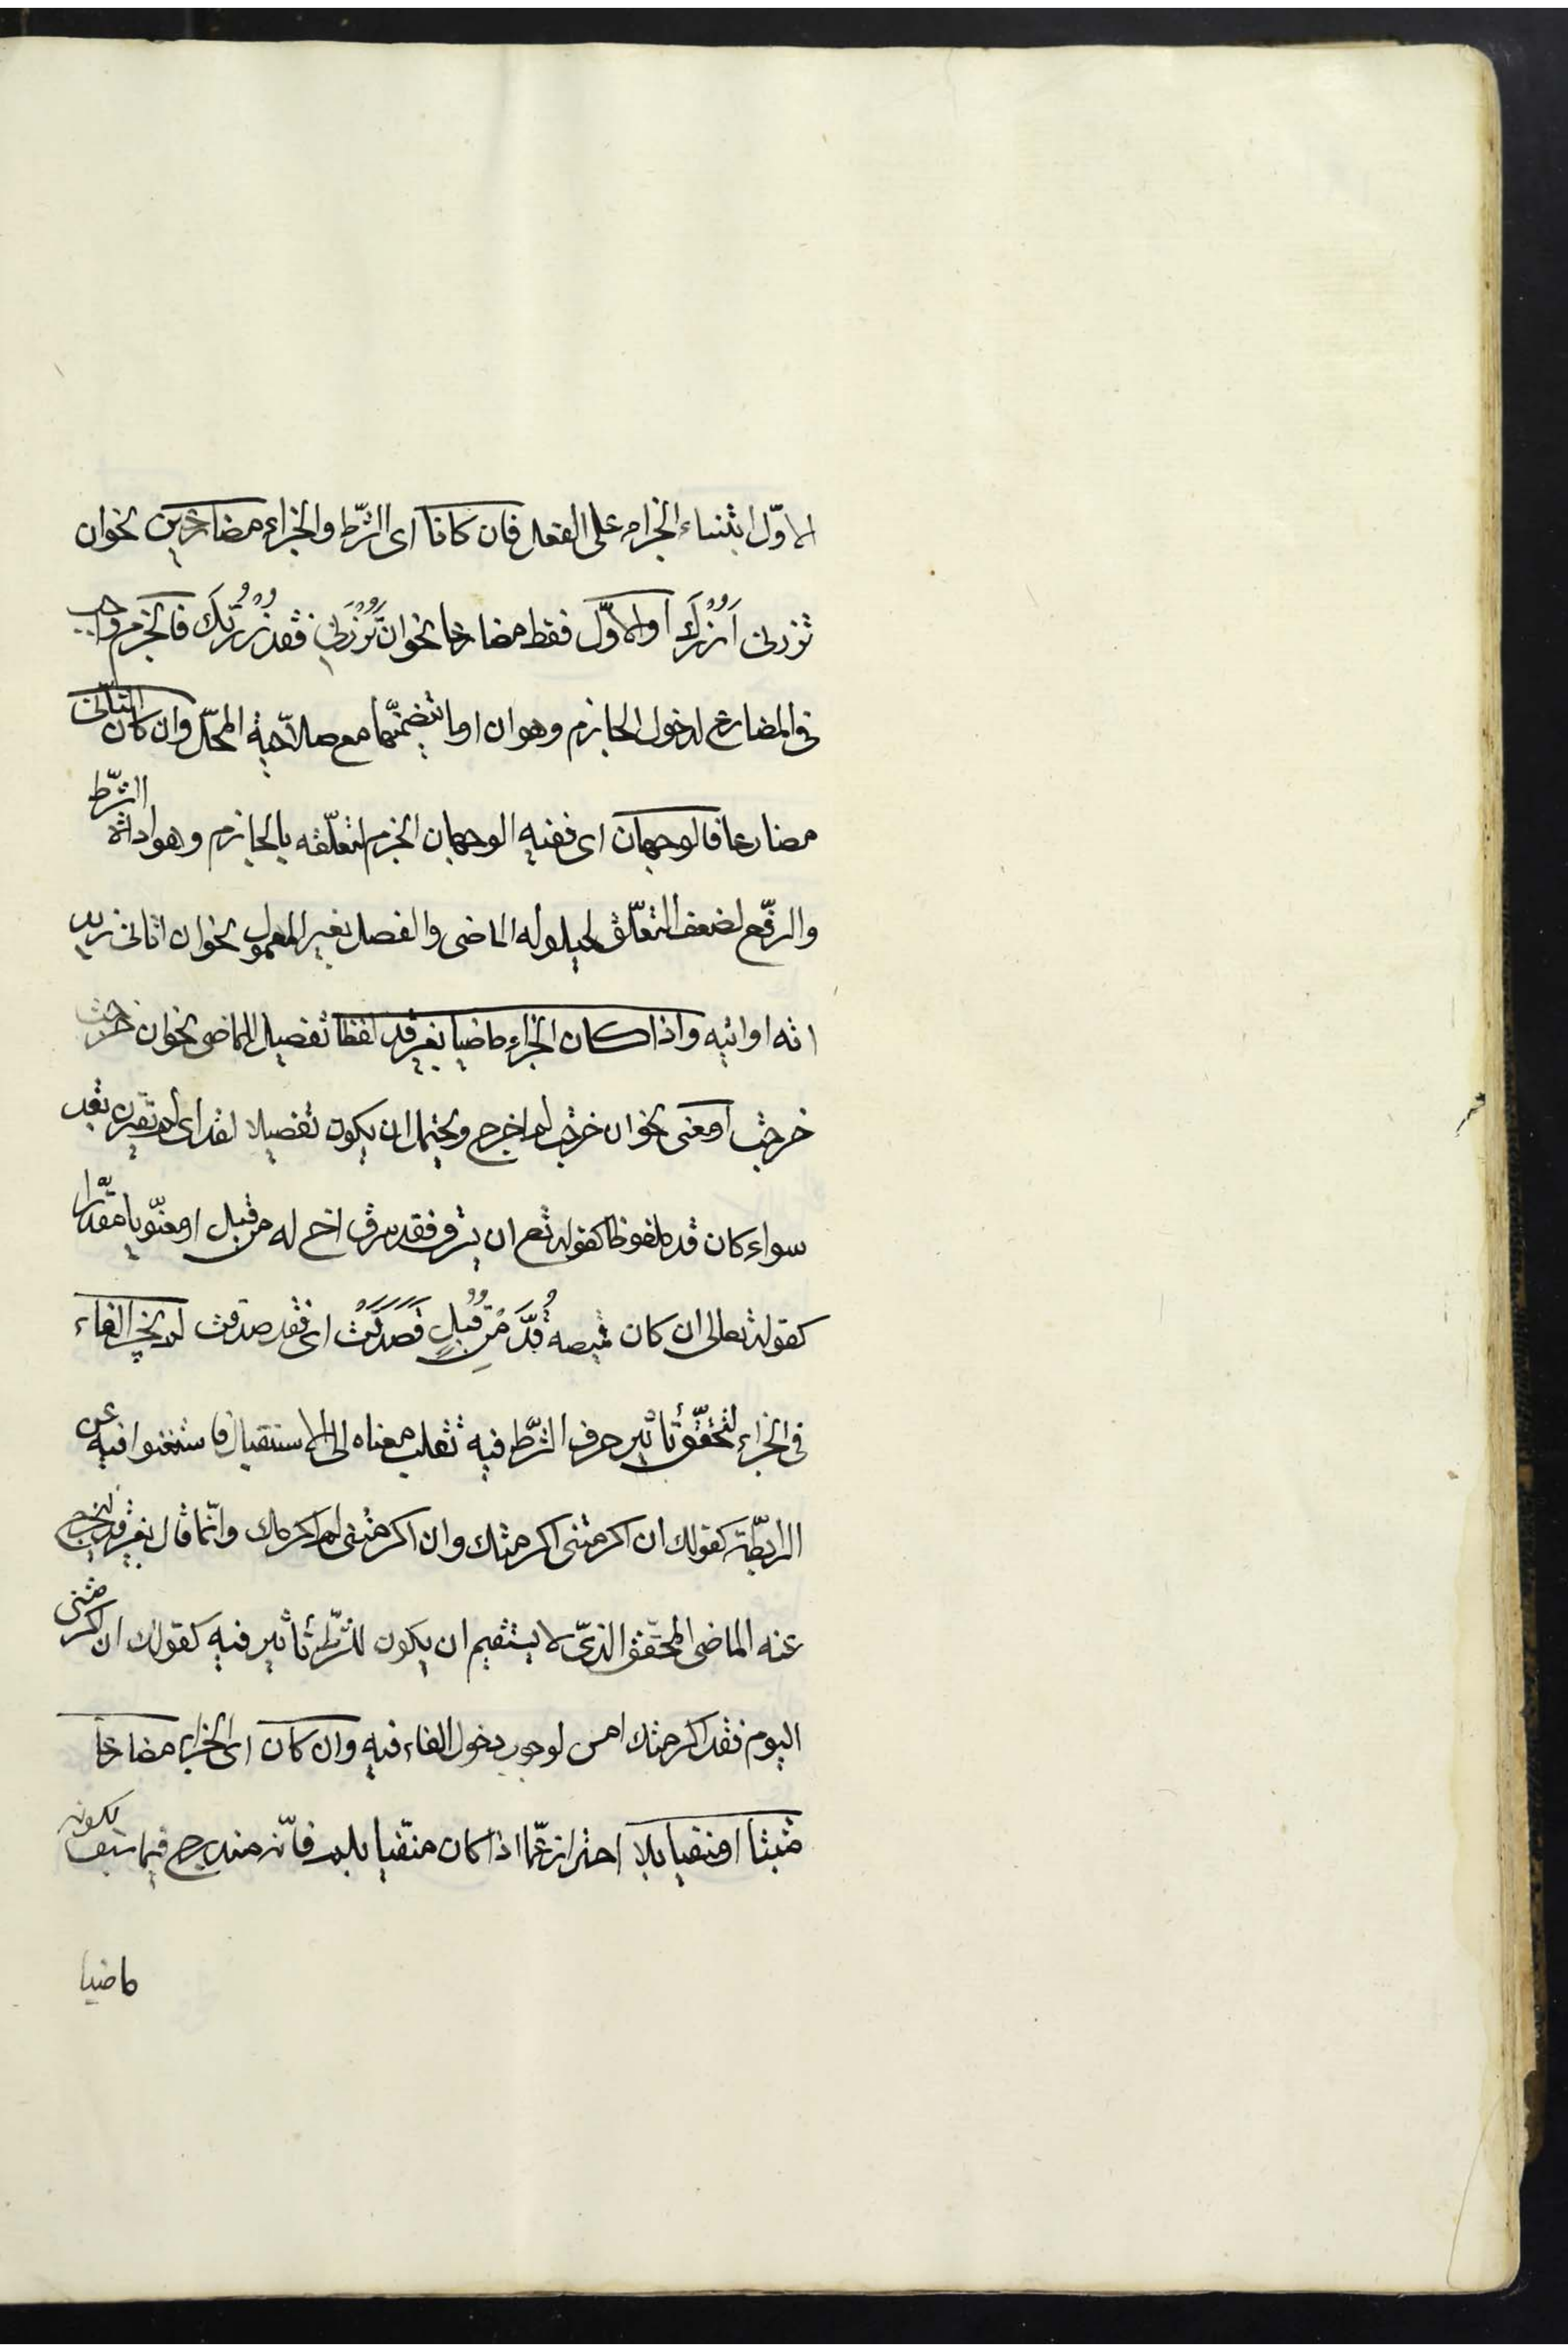 الاوّل ابتناء الجزاء على الفعل فان كانا اى الشّرط والجزاء مضارعين نحو ان
تزرنى اَزُرْكَ او الاوّل فقط مضارعا نحو ان تَزُرْنِى فقد زُرْتُكَ فالجزم واجب
فى المضارع لدخول الجازم وهو ان او ما يتضمنّها مع صلاحية المحلّ وان كان الثانى
مضارعا فالوجهان اى ففيه الوجهان الجزم لتعلّقه بالجازم وهو اداة الشّرط
والرفع لضعف التعلّق لحيلوله الماضى والفصل بغير المعمول نحو ان اتانى زيد
اته او اتيه واذا كان الجزاء ماضيا بغير قد لفظا تفصيل للماضى نحو ان خرجت
خرجت او معنى نحو ان خرجت لم اخرج ويحتمل ان يكون تفصيلا لقد اى لم يقترن بقد
سواء كان قد ملفوظا كقوله تع ان يسرق فقد سرق اخ له من قبل او معنويا مقدّرا
كقوله تعالى ان كان قميصه قُدَّ مِنْ قُبُلٍ فَصَدَقَتْ اى فقد صدقت لم يجز الفاء
فى الجزاء لتحقّق تأثير حرف الشّرط فيه تقلب معناه الى الاستقبال فاستغنوا فيه عن
الرابطة كقولك ان اكرمتنى اكرمتك وان اكرمتنى لم اكرمك وانّما قال بغير قد ليخرج
عنه الماضى المحقّق الذى لا يستقيم ان يكون للشّرط تأثير فيه كقولك ان اكرمتنى
اليوم فقد اكرمتك امس لوجوب دخول الفاء فيه وان كان اى الجزاء مضارعا
مثبتا او منفيا بلا احترازعمّا اذا كان منفيا بلم فانّه مندرج فيما سبق لكونه
ماضيا